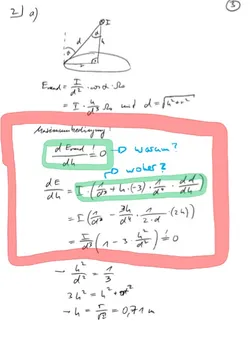 2) a)
③
I
d
h
r
E_rnd = I/d² · cos α · Ω₀
= I · h/d³ Ω₀ mit d = √(h²+r²)
Maximumbedingung!
dE_rnd/dh =! 0 → warum?
→ woher?
dE/dh = I · (1/d³ + h · (-3) · 1/d⁴ · dd/dh)
= I (1/d³ - 3h/d⁴ · 1/(2·d) · (2h))
= I/d³ (1 - 3 · h²/d²) =! 0
→ h²/d² = 1/3
3h² = h² + r²
→ h = r/√2 = 0,71 m